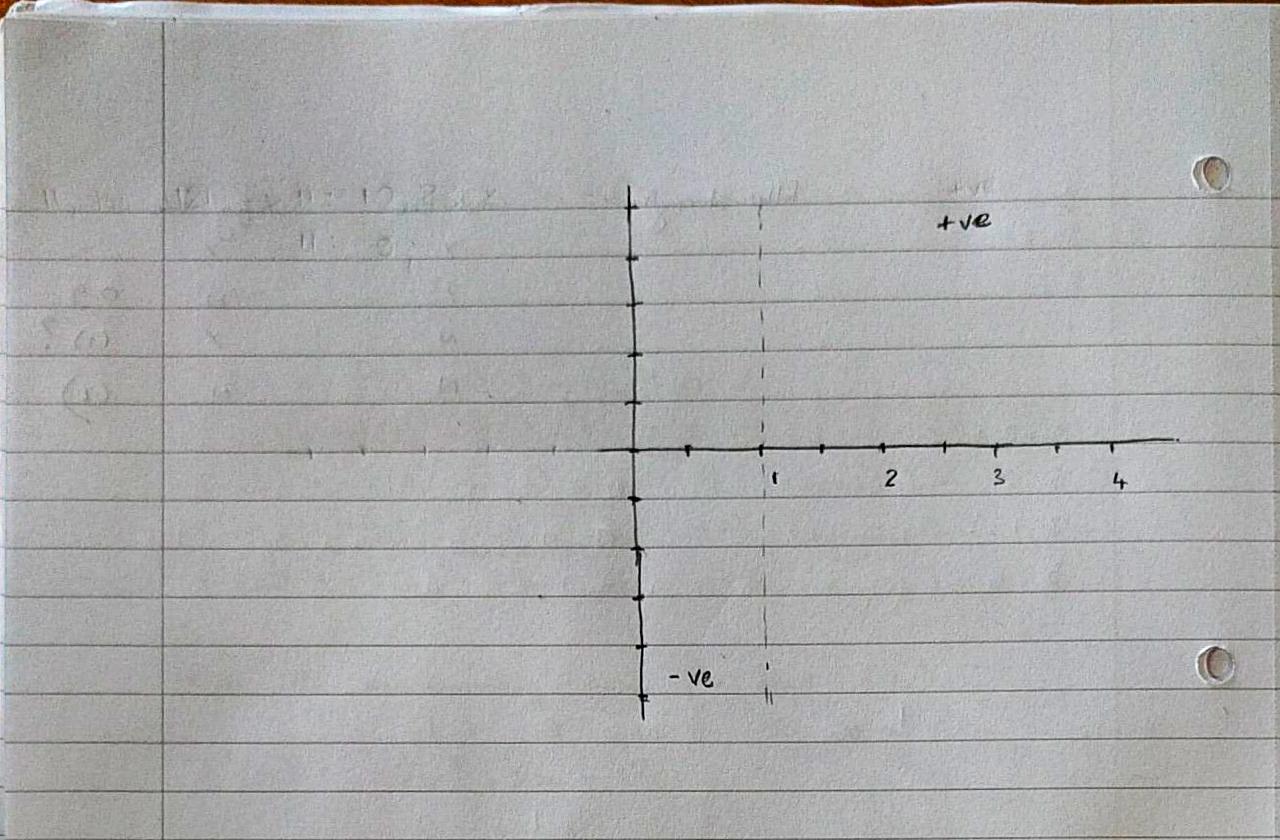 +ve
1 2 3 4
- ve